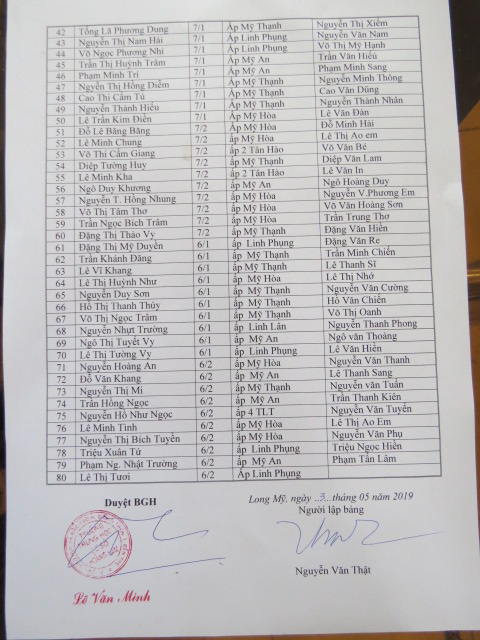 42 Tống Lã Phương Dung 7/1 Ấp Mỹ Thạnh Nguyễn Thị Xiếm
43 Nguyễn Thị Nam Hải 7/1 Ấp Linh Phụng Nguyễn Văn Nam
44 Võ Ngọc Phương Nhi 7/1 Ấp Linh Phụng Võ Thị Mỹ Hạnh
45 Trần Thị Huỳnh Trâm 7/1 Ấp Mỹ An Trần Văn Hiếu
46 Phạm Minh Trí 7/1 Ấp Mỹ An Phạm Minh Sang
47 Ngyễn Thị Hồng Diễm 7/1 Ấp Mỹ Thạnh Nguyễn Minh Thông
48 Cao Thị Cẩm Tú 7/1 Ấp Mỹ Thạnh Cao Văn Dũng
49 Nguyễn Thành Hiếu 7/1 Ấp Mỹ Thạnh Nguyễn Thành Nhân
50 Lê Trần Kim Điền 7/1 Ấp Mỹ Hòa Lê Văn Đàn
51 Đỗ Lê Băng Băng 7/2 Ấp Mỹ Hòa Đỗ Minh Hải
52 Lê Minh Chung 7/2 ấp Mỹ Hòa Lê Thị Ao em
53 Võ Thị Cẩm Giang 7/2 ấp 2 Tân Hào Võ Văn Bé
54 Diệp Tường Huy 7/2 ấp Mỹ Thạnh Diệp Văn Lam
55 Lê Minh Kha 7/2 ấp 2 Tân Hào Lê Văn In
56 Ngô Duy Khương 7/2 ấp Mỹ An Ngô Hoàng Duy
57 Nguyễn T. Hồng Nhung 7/2 ấp Mỹ Hòa Nguyễn V.Phương Em
58 Võ Thị Tâm Thơ 7/2 ấp Mỹ Hòa Võ Văn Hoàng Sơn
59 Trần Ngọc Bích Trâm 7/2 ấp Mỹ Hòa Trần Trung Thơ
60 Đặng Thị Thảo Vy 7/2 ấp Mỹ Thạnh Đặng Văn Hiền
61 Đặng Thị Mỹ Duyên 6/1 ấp Linh Phụng Đặng Văn Re
62 Trần Khánh Đăng 6/1 ấp Mỹ Thạnh Trần Minh Chiến
63 Lê Vĩ Khang 6/1 ấp Mỹ Thạnh Lê Thanh Sĩ
64 Lê Thị Huỳnh Như 6/1 ấp Mỹ Hòa Lê Thị Nhớ
65 Nguyễn Duy Sơn 6/1 ấp Mỹ Thạnh Nguyễn Văn Cường
66 Hồ Thị Thanh Thúy 6/1 ấp Mỹ Thạnh Hồ Văn Chiến
67 Võ Thị Ngọc Trâm 6/1 ấp Mỹ Thạnh Võ Thị Oanh
68 Nguyễn Nhựt Trường 6/1 ấp Linh Lân Nguyễn Thanh Phong
69 Ngô Thị Tuyết Vy 6/1 ấp Mỹ An Ngô văn Thoảng
70 Lê Thị Tường Vy 6/1 ấp Linh Phụng Lê Văn Hiền
71 Nguyễn Hoàng An 6/2 ấp Mỹ Hòa Nguyễn Văn Thanh
72 Đỗ Văn Khang 6/2 ấp Mỹ An Lê Thanh Sang
73 Nguyễn Thị Mi 6/2 ấp Mỹ Thạnh Nguyễn văn Tuấn
74 Trần Hồng Ngọc 6/2 ấp Mỹ An Trần Thanh Kiên
75 Nguyễn Hồ Như Ngọc 6/2 ấp 4 TLT Nguyễn Văn Tuyền
76 Lê Minh Tính 6/2 ấp Mỹ Hòa Lê Thị Ao Em
77 Nguyễn Thị Bích Tuyền 6/2 ấp Mỹ Hòa Nguyễn Văn Phụ
78 Triệu Xuân Tứ 6/2 ấp Linh Phụng Triệu Ngọc Hiền
79 Phạm Ng. Nhật Trường 6/2 ấp Mỹ An Phạm Tấn Lâm
80 Lê Thị Tươi 6/2 Ấp Linh Phụng
Long Mỹ, ngày ..3.. tháng 05 năm 2019
Duyệt BGH
Người lập bảng
Nguyễn Văn Thật
Lê Văn Minh